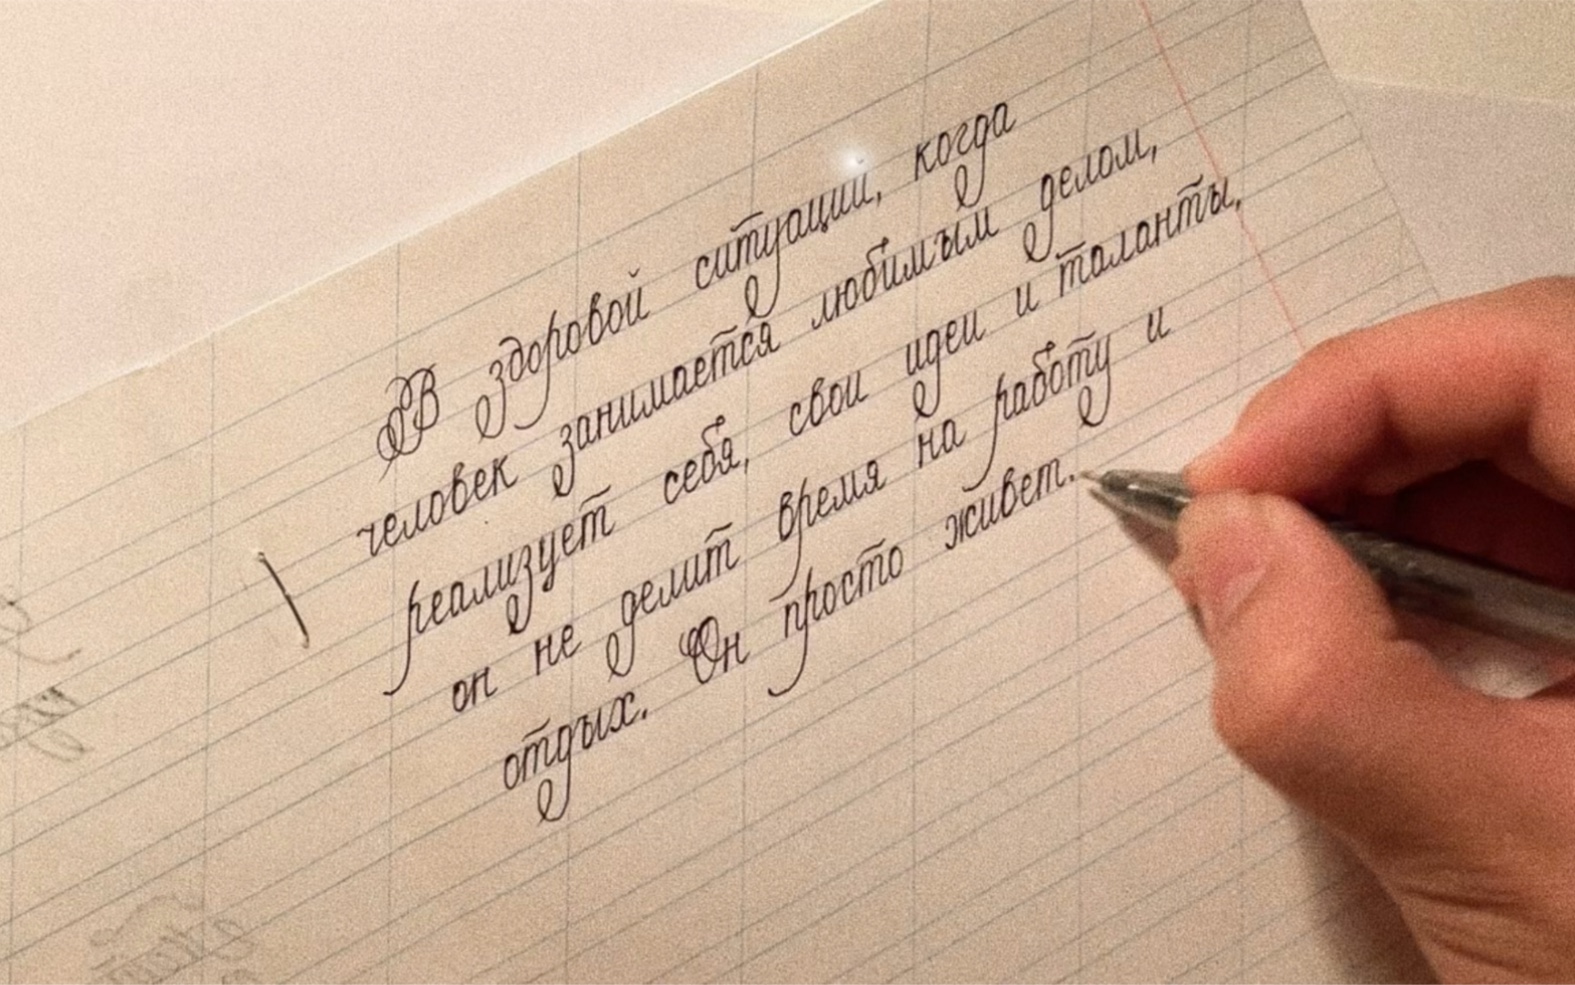 В здоровой ситуации, когда
человек занимается любимым делом,
реализует себя, свои идеи и таланты,
он не делит время на работу и
отдых. Он просто живет.